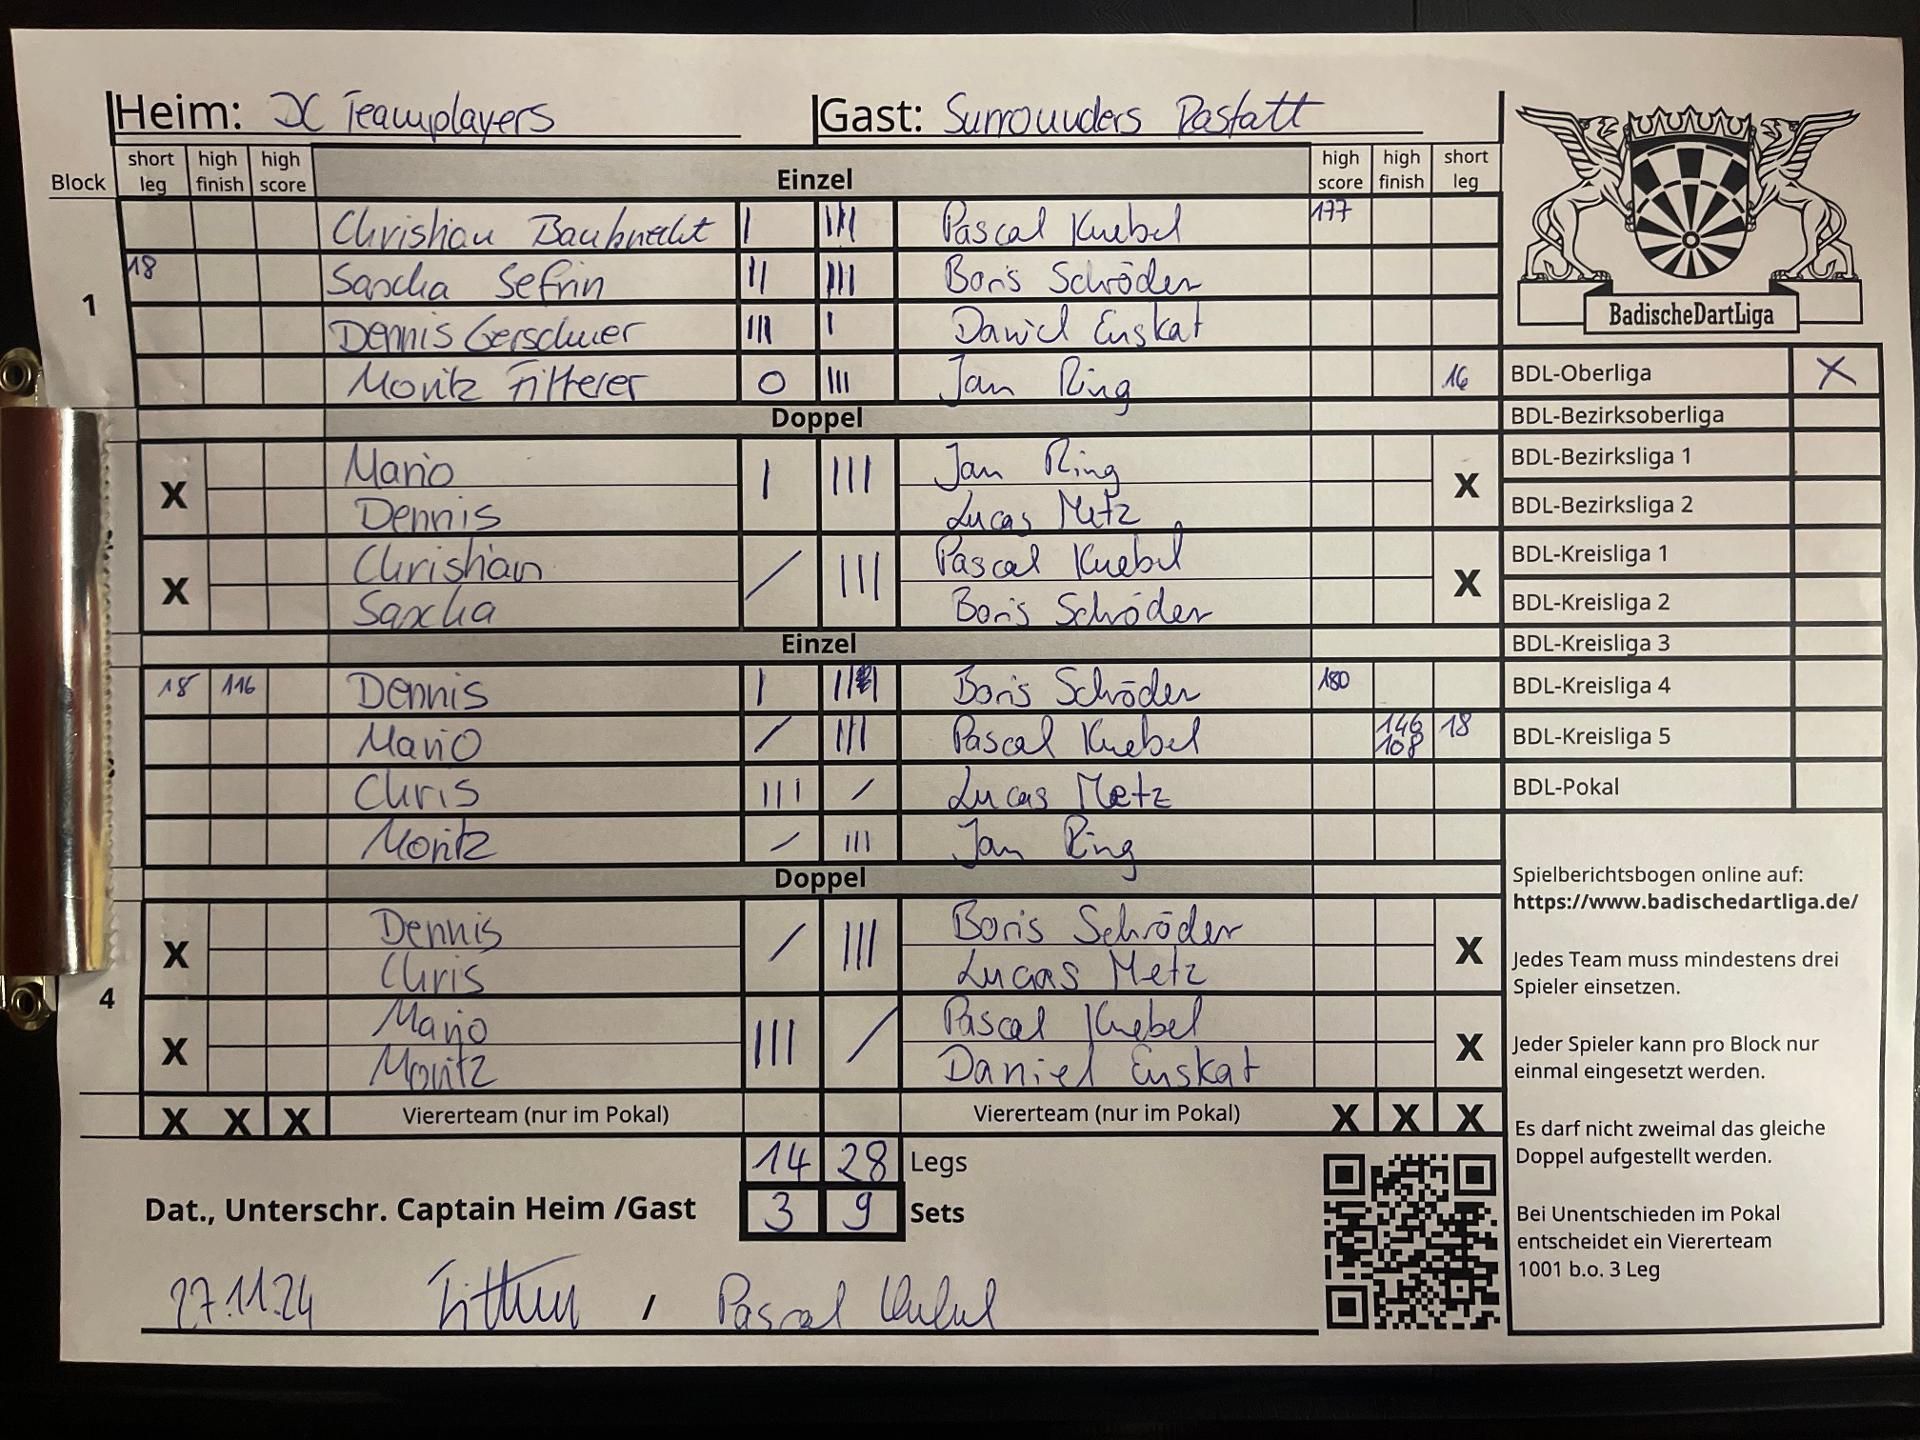 Heim: DC Teamplayers Gast: Surrounders Rastatt
Block short leg high finish high score Einzel high score high finish short leg
1
Christian Bauknecht I III Pascal Knebel 177
18 Sascha Sefrin II III Boris Schröder
Dennis Gerschner III I Daniel Euskat
Moritz Fitterer O III Jan Ring 16
Doppel
X Mario I III Jan Ring X
Dennis Lucas Metz
X Christian / III Pascal Knebel X
Sascha Boris Schröder
Einzel
18 116 Dennis I III Boris Schröder 180
Mario / III Pascal Knebel 146 108 18
Chris III / Lucas Metz
Moritz / III Jan Ring
Doppel
4
X Dennis / III Boris Schröder X
Chris Lucas Metz
X Mario III / Pascal Knebel X
Moritz Daniel Euskat
X X X Viererteam (nur im Pokal) Viererteam (nur im Pokal) X X X
14 28 Legs
Dat., Unterschr. Captain Heim /Gast 3 9 Sets
27.11.24 Fitterer / Pascal Knebel
BadischeDartLiga
BDL-Oberliga X
BDL-Bezirksoberliga
BDL-Bezirksliga 1
BDL-Bezirksliga 2
BDL-Kreisliga 1
BDL-Kreisliga 2
BDL-Kreisliga 3
BDL-Kreisliga 4
BDL-Kreisliga 5
BDL-Pokal
Spielberichtsbogen online auf:
https://www.badischedartliga.de/
Jedes Team muss mindestens drei
Spieler einsetzen.
Jeder Spieler kann pro Block nur
einmal eingesetzt werden.
Es darf nicht zweimal das gleiche
Doppel aufgestellt werden.
Bei Unentschieden im Pokal
entscheidet ein Viererteam
1001 b.o. 3 Leg